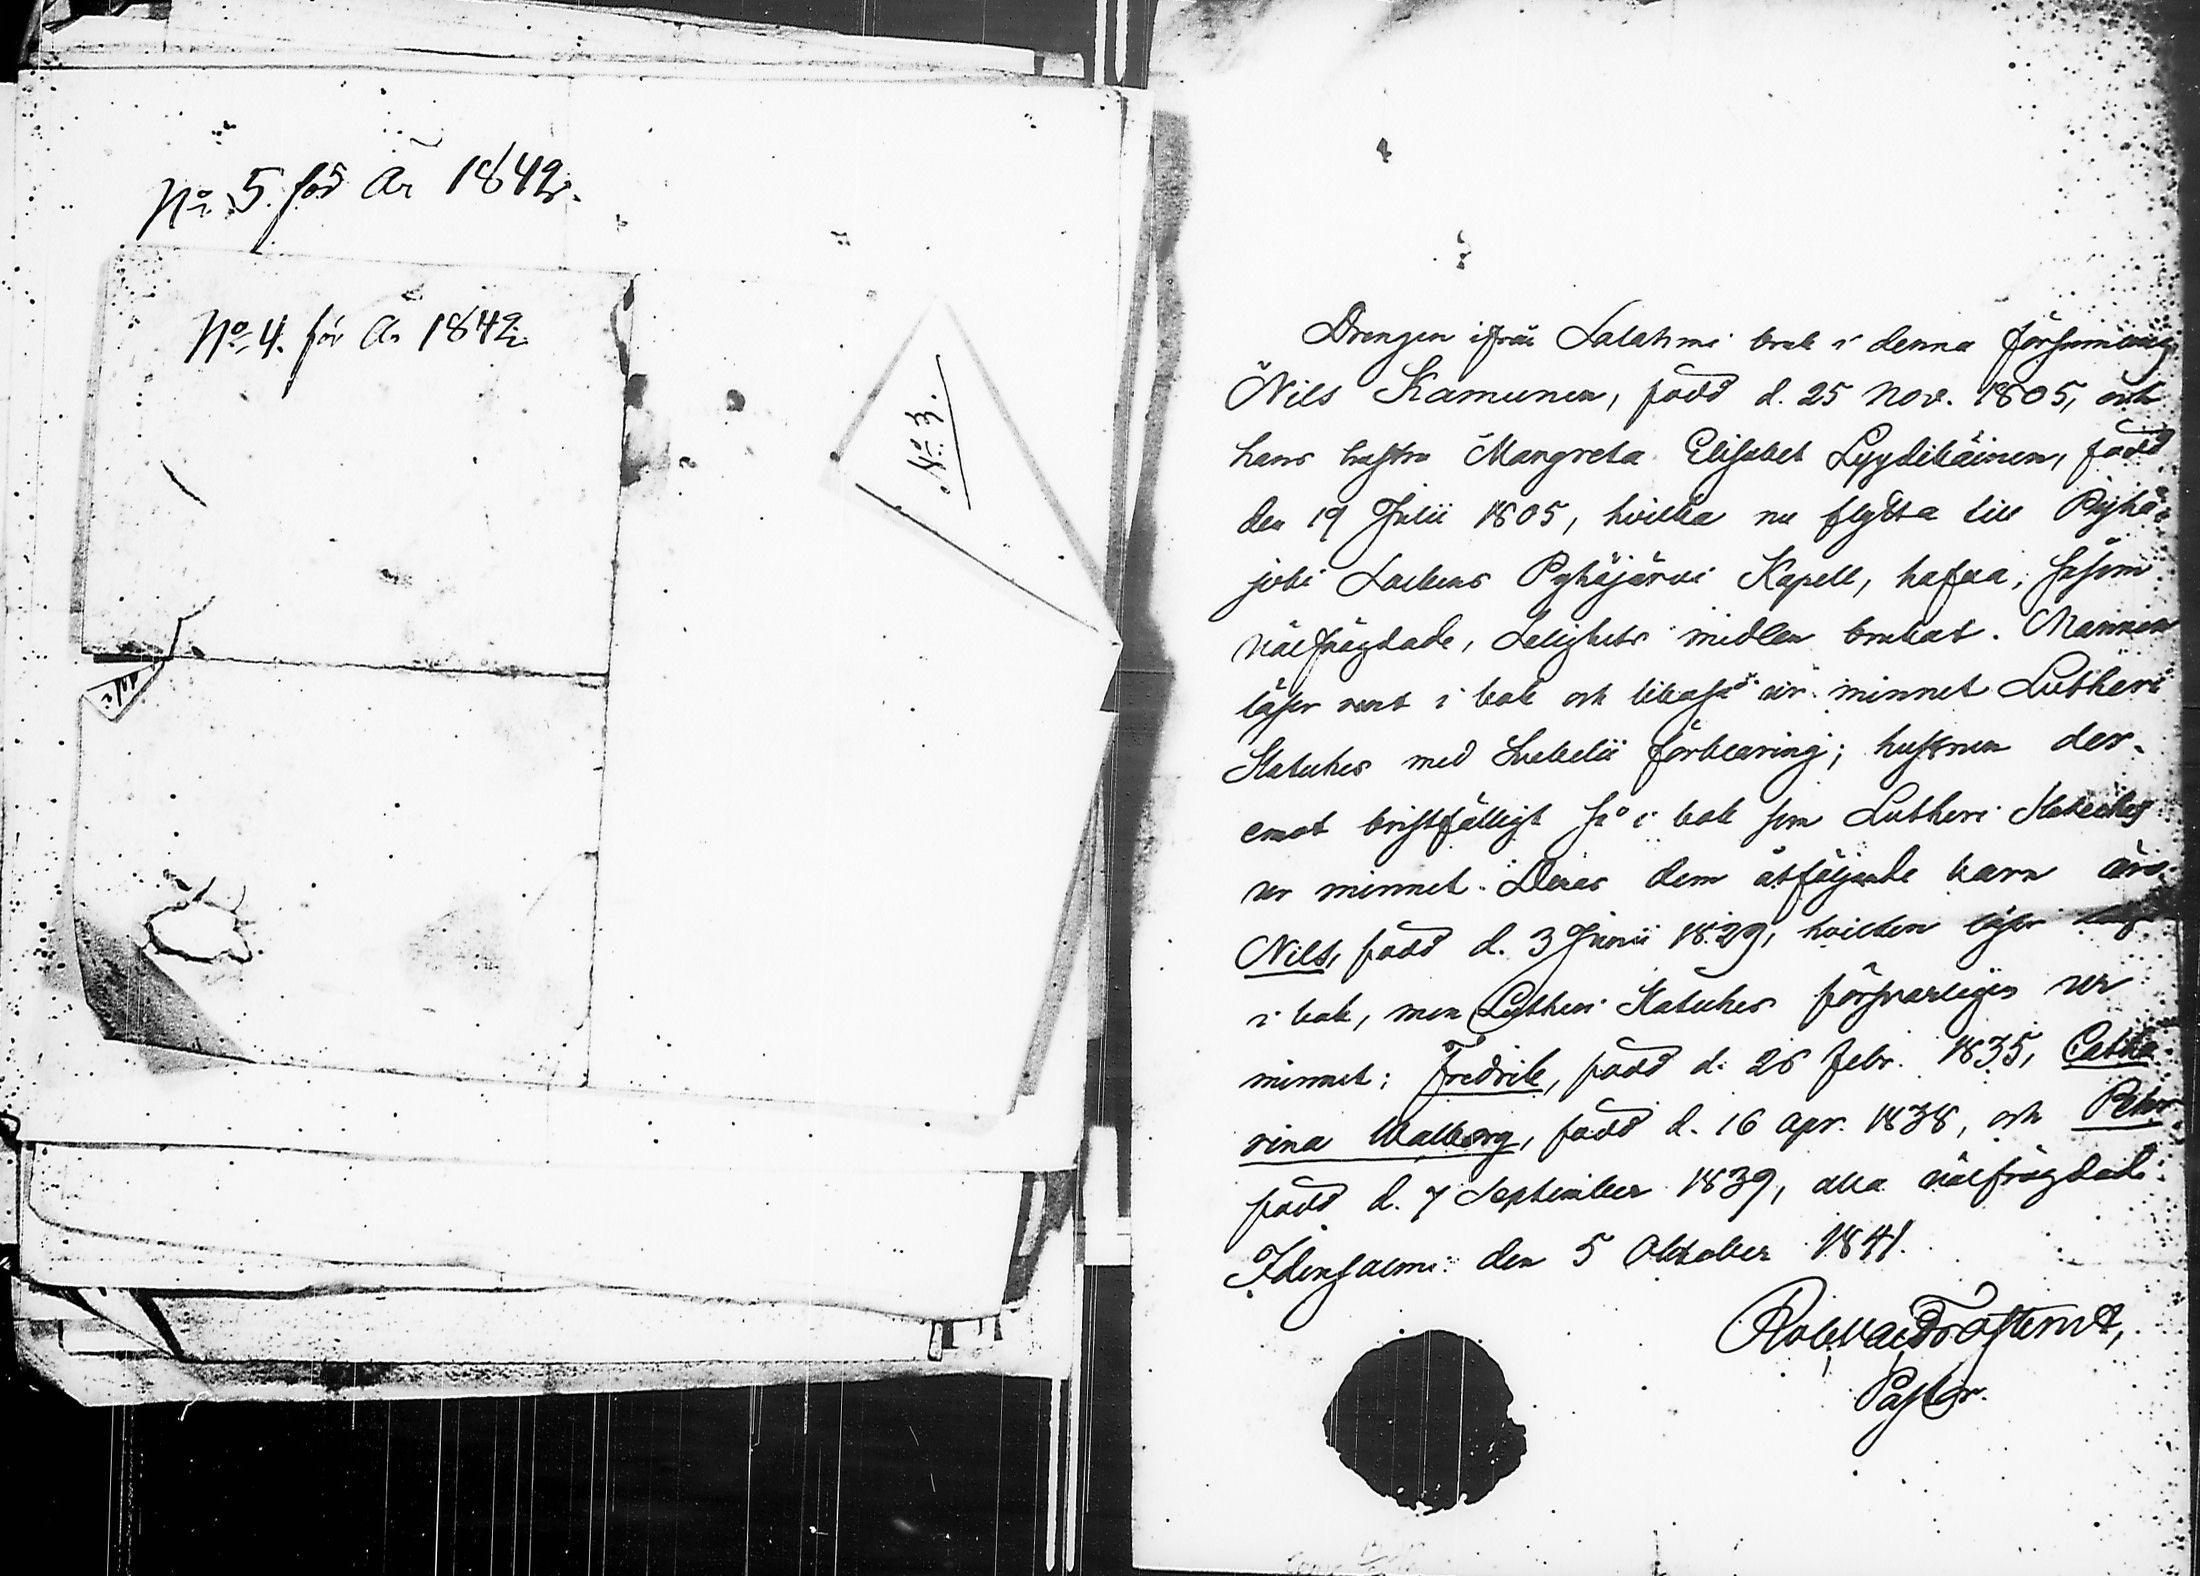 No 5. för År 1842.
No 4. för År 1842.
No 3.
Drengen ifrån Salahmi bruk i denna församling,
Nils Kamunen, född d. 25 Nov. 1805, och
hans hustru Margreta Elisabet Lyydikäinen, född
den 19 Julii 1805, hvilka nu flytta till Pyhä-
joki Sockens Pyhäjärvi Kapell, hafva, såsom
välfrägdade, Salighets medlen brukat. Mannen
läser rent i bok och likaså ur minnet Lutheri
Kateches med Svebelii förklaring; hustrun der-
emot bristfälligt så i bok som Lutheri Kateches
ur minnet. Deras dem åtföljande barn äro:
Nils, född d. 3 Junii 1829, hvilken läser
i bok, men Lutheri Kateches försvarligen ur
minnet; Fredrik, född d. 26 Febr. 1835, Catha
rina Walborg, född d. 16 Apr. 1838, och Petter
född d. 7 September 1839, alla välfrägdade.
Idensalmi den 5 Oktober 1841.
Rob. Wald. Frosterus,
Pastor.